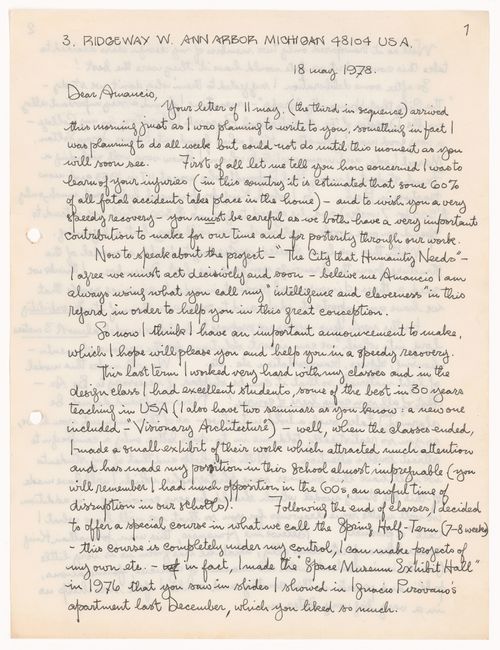 1
3. RIDGEWAY W. ANN ARBOR MICHIGAN 48104 USA.
18 may 1978.
Dear Amancio,
Your letter of 11 may. (the third in sequence) arrived
this morning just as I was planning to write to you, something in fact I
was planning to do all week but could not do until this moment as you
will soon see. First of all let me tell you how concerned I was to
learn of your injuries (in this country it is estimated that some 60%
of all fatal accidents take place in the home) - and to wish you a very
speedy recovery - you must be careful as we both have a very important
contribution to make for our time and for posterity through our work.
Now to speak about the project - "The City that Humanity Needs" -
I agree we must act decisively and soon - beleive me Amancio I am
always using what you call my "intelligence and cleverness" in this
regard in order to help you in this great conception.
So now I think I have an important announcement to make,
which I hope will please you and help you in a speedy recovery.
This last term I worked very hard with my classes and in the
design class I had excellent students, some of the best in 30 years
teaching in USA (I also have two seminars as you know: a new one
included - "Visionary Architecture) - well, when the classes ended,
I made a small exhibit of their work which attracted much attention
and has made my position in this school almost impregnable (you
will remember I had much opposition in the 60's an awful time of
disruption in our schools). Following the end of classes, I decided
to offer a special course in what we call the Spring Half-Term (7-8 weeks)
- this course is completely under my control, I can make projects of
my own etc. - in fact, I made the "Space Museum Exhibit Hall"
in 1976 that you saw in slides I showed in Ignacio Pirovano's
apartment last December, which you liked so much.